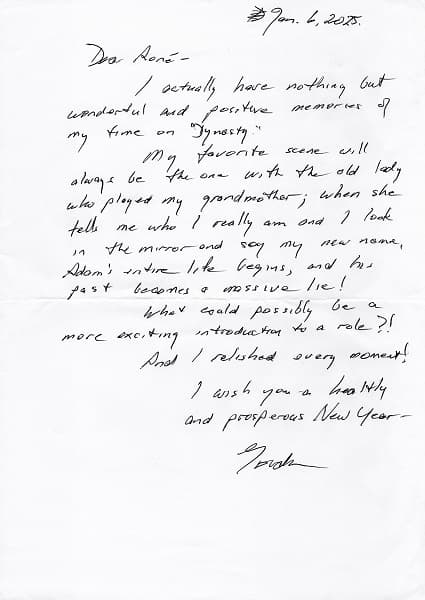 Jan. 6, 2025.
Dear René-
I actually have nothing but
wonderful and positive memories of
my time on "Dynasty."
My favorite scene will
always be the one with the old lady
who played my grandmother; when she
tells me who I really am and I look
in the mirror and say my new name,
Adam's entire life begins, and his
past becomes a massive lie!
What could possibly be a
more exciting introduction to a role?!
And I relished every moment!
I wish you a healthy
and prosperous New Year-
Gordon